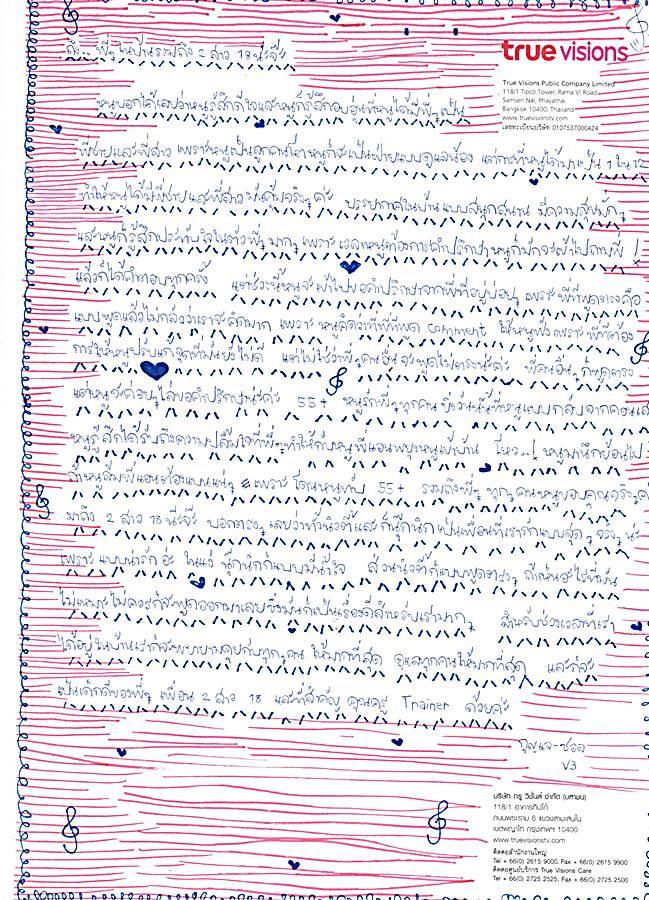 ถึง.. พี่ๆ ในบ้านรวมถึง 2 สาว 18 นะจ๊ะ
true visions
True Visions Public Company Limited
118/1 Tipco Tower, Rama VI Road
Samsen Nai, Phayathai
Bangkok 10400, Thailand
www.truevisionstv.com
เลขทะเบียนบริษัท 0107537000424
หนูบอกได้เลยว่าหนูรู้สึกดีใจและหนูก็รู้สึกอบอุ่นที่หนูได้มีพี่ๆ เป็น
พี่ชายและพี่สาว เพราะหนูเป็นลูกคนโตหนูก็จะเป็นฝ่ายแบบดูแลน้อง แต่การที่หนูได้มาเป็น 1 ใน 12
ทำให้หนูได้มีพี่ชายและพี่สาว มันคุ้มจริงๆ ค่ะ บรรยากาศในบ้านแบบสนุกสนาน มีความสุขมากๆ
และหนูก็รู้สึกประทับใจในตัวพี่ๆ มากๆ เพราะเวลาหนูต้องการคำปรึกษาหนูก็มักจะเข้าไปถามพี่
แล้วก็ได้คำตอบทุกครั้ง แต่ช่วงนี้หนูจะเข้าไปขอคำปรึกษาจากพี่ที่อยู่บ่อยๆ เพราะพี่ที่พูดตรงคือ
แบบพูดแล้วไม่กลัวว่าเราจะคิดมาก เพราะ หนูคิดว่าที่พี่ที่พูด comment ให้หนูฟัง เพราะพี่ที่ต้อง
การให้หนูปรับแก้จุดที่มันยังไม่ดี แต่ไม่ใช่ว่าพี่ๆ คนอื่นจะพูดไม่ตรงนะค่ะ พี่คนอื่นๆ ก็พูดตรง
แต่หนูจะค่อยๆ ไล่ขอคำปรึกษานะค่ะ 55+ หนูรักพี่ๆ ทุกคน ยิ่งวันนั้นที่หนูแบบกลับจากคอนเส
หนูรู้สึกได้รับถึงความปลื้มใจที่พี่ๆ ทำให้กับหนู พี่แอนพยุงหนูเข้าบ้าน ไหว..! หนูมานึกย้อนไป
ถ้าหนูล้มพี่แอนต้องแบนแน่ๆ เพราะโดนหนูทับ 55+ รวมถึงพี่ๆ ทุกๆ คนหนูขอบคุณจริงๆ ค
มาถึง 2 สาว 18 นี่จ๊ะ บอกตรงๆ เลยว่าทั้งนิวตี้และก็นุ๊กนิก เป็นเพื่อนที่เรารักแบบสุดๆ จริงๆ น่ะ
เพราะ แบบน่ารัก อ่ะ ในแง่ นุ๊กนิกก็แบบมีน้ำใจ ส่วนนิวตี้ก็แบบพูดตรงๆ ถ้าเห็นอะไรที่มัน
ไม่เหมาะไม่ควรก็จะพูดออกมาเลยซึ่งมันก็เป็นเรื่องดีสำหรับเรามากๆ สำหรับช่วงเวลาที่เรา
ได้อยู่ในบ้านเราก็จะพยายามคุยกับทุกๆ คน ให้มากที่สุด ดูแลทุกคนให้มากที่สุด และก็จะ
เป็นเด็กดีของพี่ๆ เพื่อน 2 สาว 18 และที่สำคัญ คุณครู Trainer ด้วยค่ะ
กุญแจ-ซอล
V3
บริษัท ทรู วิชั่นส์ จำกัด (มหาชน)
118/1 อาคารทิปโก้
ถนนพระราม 6 แขวงสามเสนใน
เขตพญาไท กรุงเทพฯ 10400
www.truevisionstv.com
ติดต่อสำนักงานใหญ่
Tel + 66(0) 2615 9000, Fax + 66(0) 2615 9900
ติดต่อศูนย์บริการ True Visions Care
Tel + 66(0) 2725 2525, Fax + 66(0) 2725 2500